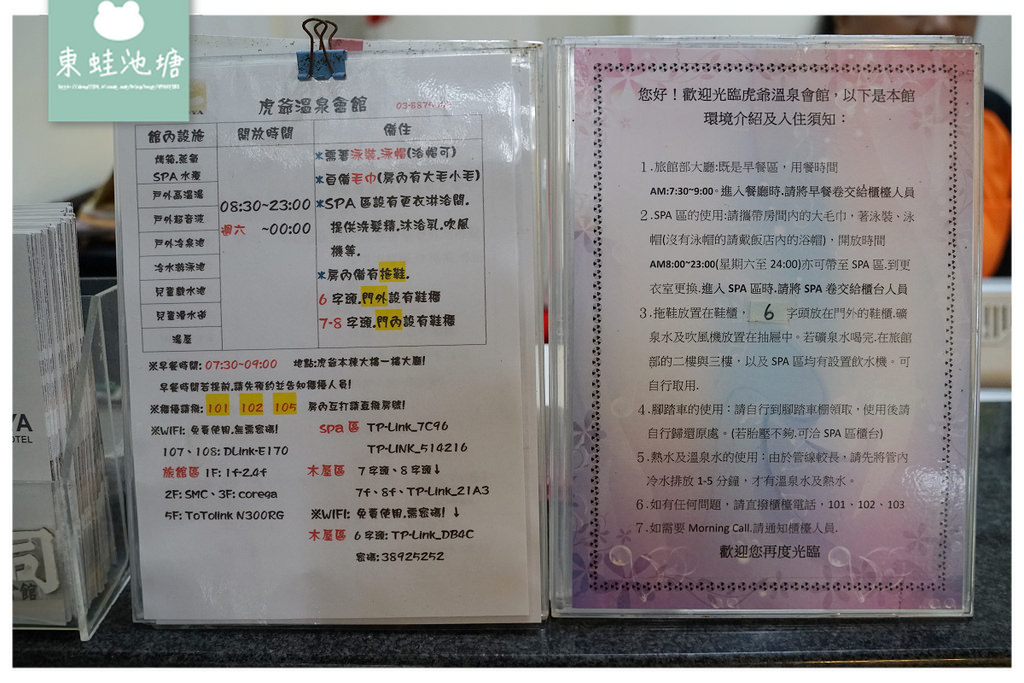 東蛙池塘
虎爺溫泉會館
館內設施 開放時間 備註
烤箱.蒸氣
SPA 水療
戶外高溫湯
戶外超音波
戶外冷泉池
冷水游泳池
兒童戲水池
兒童漫水道
湯屋
08:30~23:00
週六 ~00:00
*需著泳裝.泳帽(浴帽可)
*自備毛巾(房內有大毛小毛)
*SPA 區設有更衣淋浴間.
提供洗髮精.沐浴乳.吹風
機等.
*房內備有拖鞋.
6 字頭.門外設有鞋櫃
7-8 字頭.門內設有鞋櫃
※早餐時間: 07:30~09:00 地點:虎爺本棟大樓一樓大廳!
早餐時間若提前.請先預約並告知櫃檯人員!
※櫃檯請撥: 101 102 105 房內互打請直撥房號!
※WIFI: 免費使用.無密碼!
107、108: DLink-E170
旅館區 1F: 1f-2.4f
2F: SMC、3F: corega
5F: ToTolink N300RG
spa 區 TP-Link_7C96
TP-LINK_514216
木屋區 7 字頭、8 字頭↓
7f、8f、TP-Link_21A3
※WIFI: 免費使用.需密碼! ↓
木屋區 6 字頭: TP-Link_DB4C
密碼:38925252
您好！歡迎光臨虎爺溫泉會館，以下是本館
環境介紹及入住須知：
1.旅館部大廳:既是早餐區，用餐時間
AM:7:30~9:00。進入餐廳時.請將早餐卷交給櫃檯人員
2.SPA 區的使用:請攜帶房間內的大毛巾，著泳裝、泳
帽(沒有泳帽的請戴飯店內的浴帽)，開放時間
AM8:00~23:00(星期六至 24:00)亦可帶至 SPA 區.到更
衣室更換.進入 SPA 區時.請將 SPA 卷交給櫃台人員
3.拖鞋放置在鞋櫃， 6 字頭放在門外的鞋櫃.礦
泉水及吹風機放置在抽屜中。若礦泉水喝完.在旅館
部的二樓與三樓，以及 SPA 區均有設置飲水機。可
自行取用.
4.腳踏車的使用：請自行到腳踏車棚領取，使用後請
自行歸還原處。(若胎壓不夠.可洽 SPA 區櫃台)
5.熱水及溫泉水的使用：由於管線較長，請先將管內
冷水排放 1-5 分鐘，才有溫泉水及熱水。
6.如有任何問題，請直撥櫃檯電話，101、102、103
7.如需要 Morning Call.請通知櫃檯人員.
歡迎您再度光臨